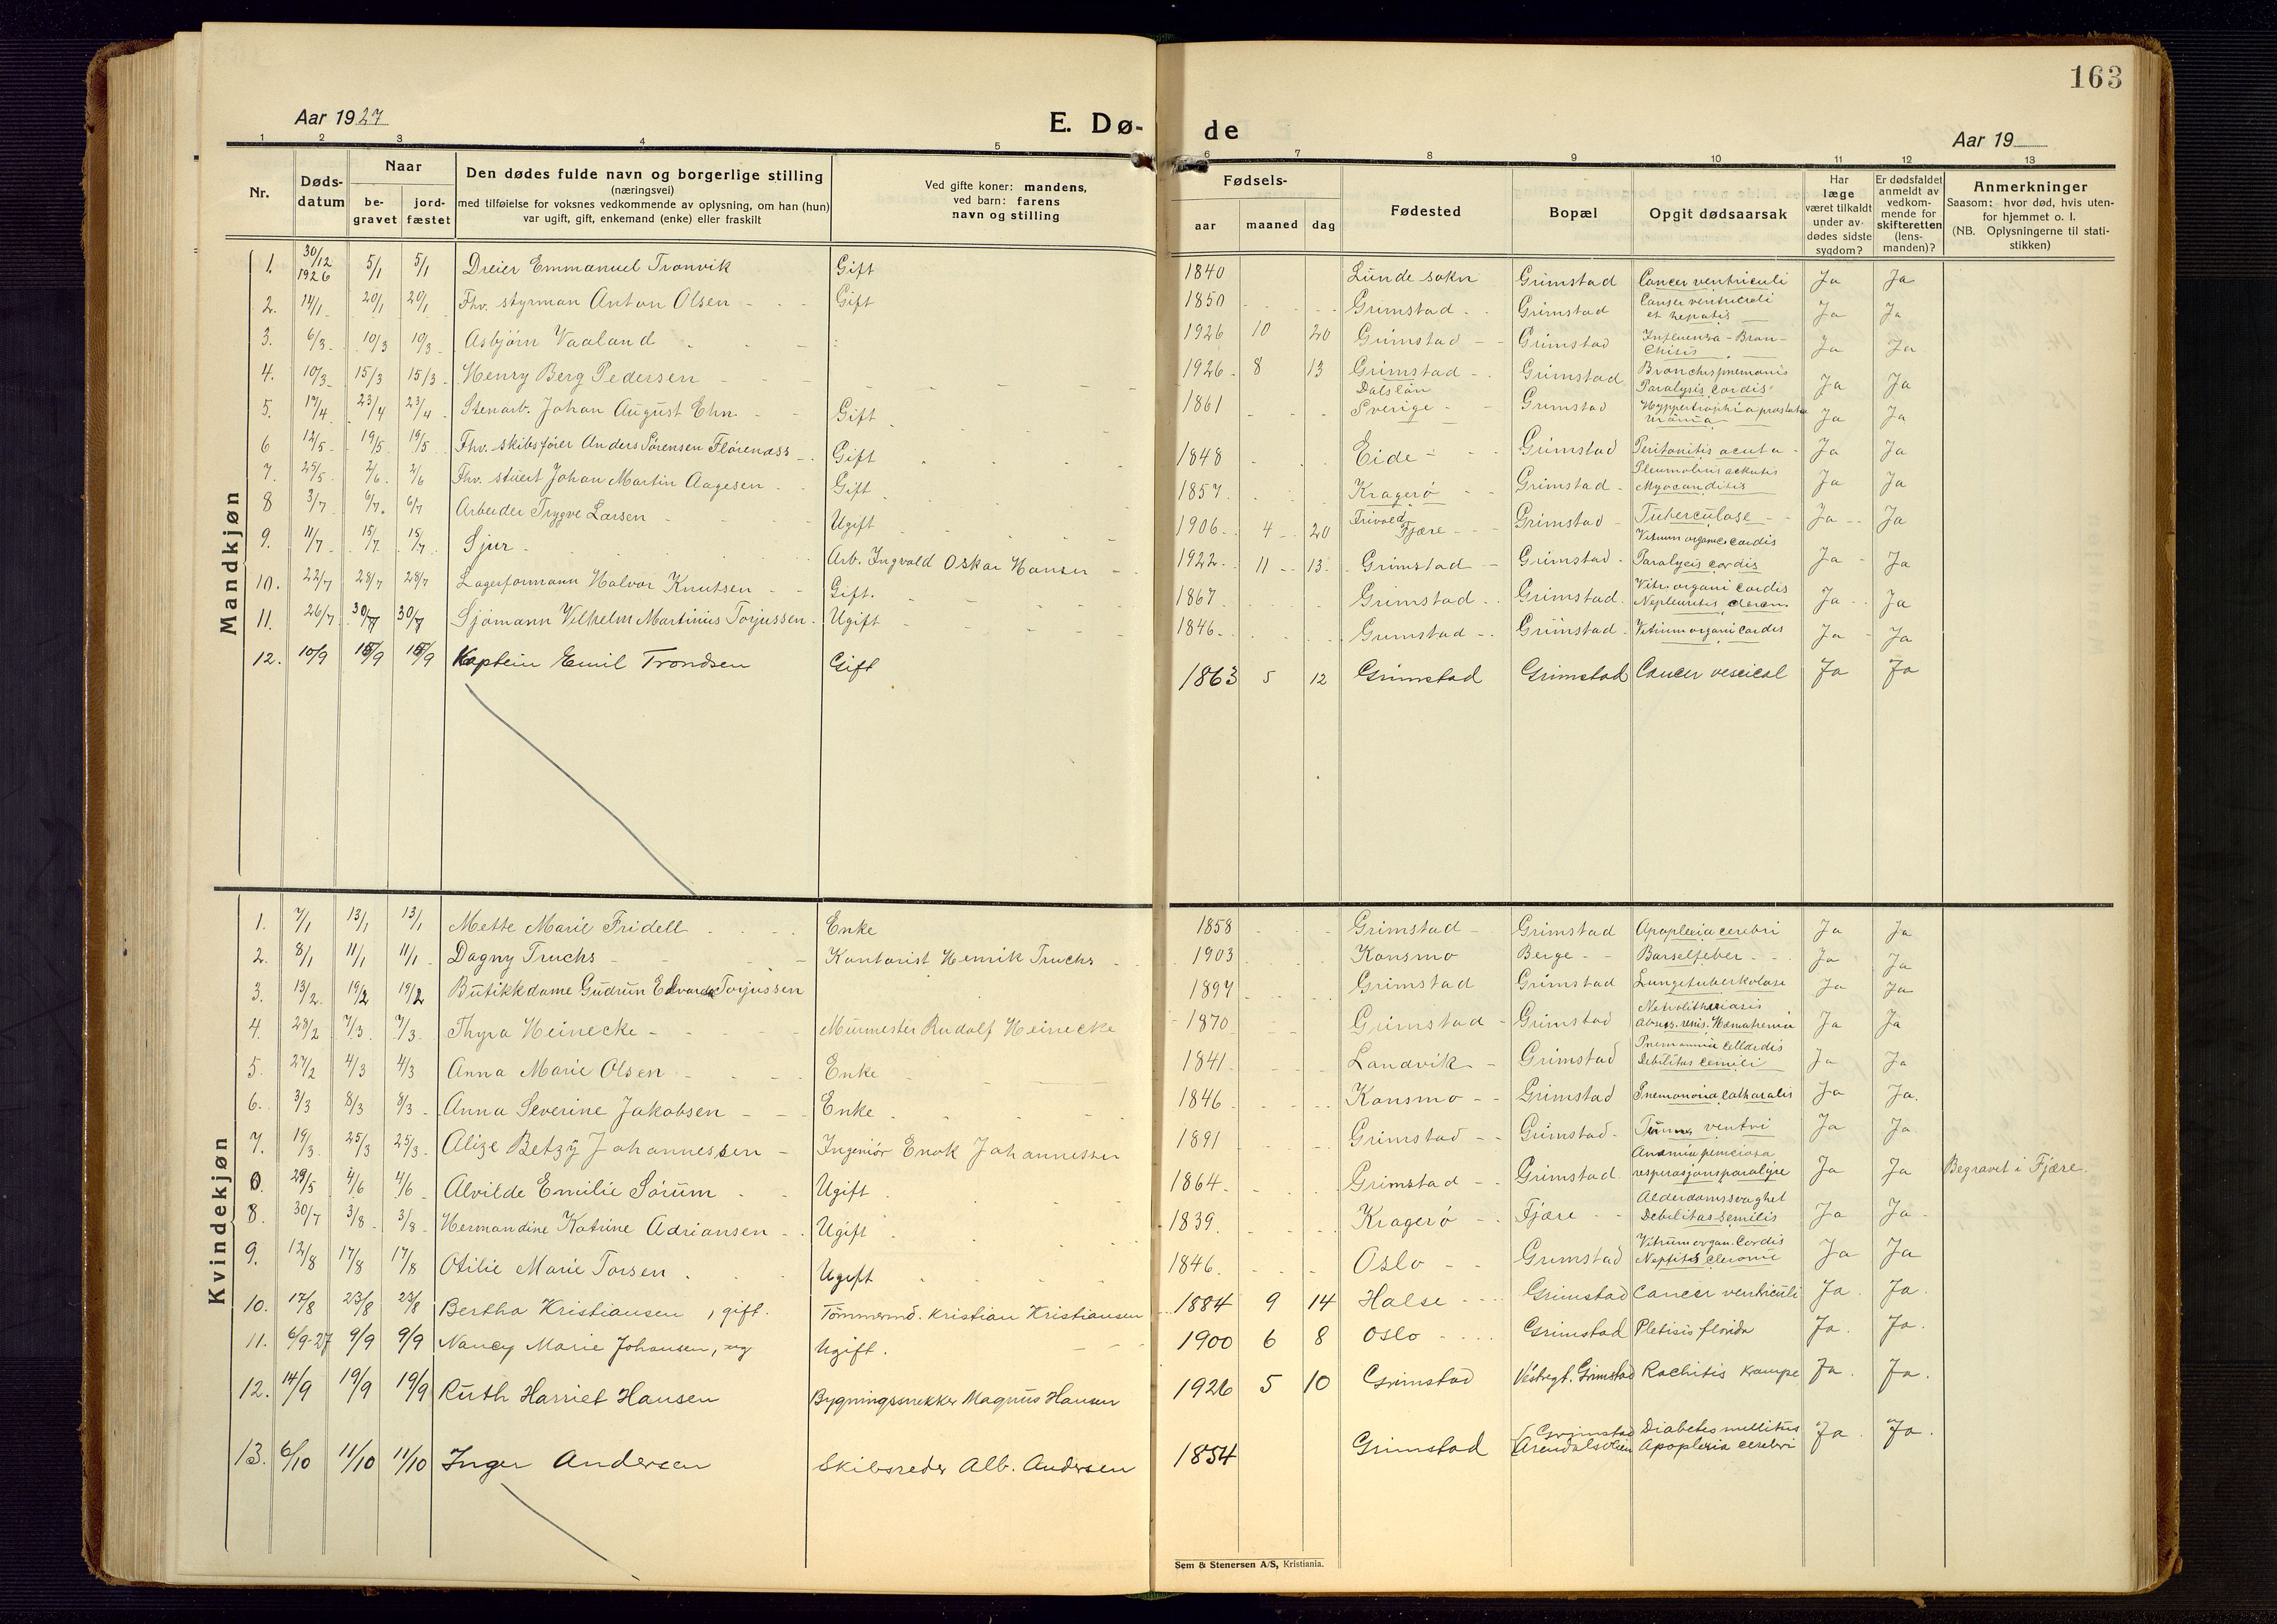 163
Aar 1927
E. Dø-
de
Aar 19
1 2 3 4 5 6 7 8 9 10 11 12 13
Nr.
Døds-
datum
Naar
be-
gravet
jord-
fæstet
Den dødes fulde navn og borgerlige stilling
(næringsvei)
med tilføielse for voksnes vedkommende av oplysning, om han (hun)
var ugift, gift, enkemand (enke) eller fraskilt
Ved gifte koner: mandens,
ved barn: farens
navn og stilling
Fødsels-
aar
maaned
dag
Fødested
Bopæl
Opgit dødsaarsak
Har
læge
været tilkaldt
under av-
dødes sidste
sygdom?
Er dødsfaldet
anmeldt av
vedkom-
mende for
skifteretten
(lens-
manden)?
Anmerkninger
Saasom: hvor død, hvis uten-
for hjemmet o. l.
(NB. Oplysningerne til stati-
stikken)
Mandkjøn
1. 30/12 1926 5/1 5/1 Dreier Emmanuel Tronvik Gift 1840 Lunde sokn Grimstad Cancer ventriculi Ja Ja
2. 14/1 20/1 20/1 Fhv. styrman Anton Olsen Gift 1850 Grimstad Grimstad Canser ventriculi et hepatis Ja Ja
3. 6/3 10/3 10/3 Asbjørn Vaaland 1926 10 20 Grimstad Grimstad Influensa - Bron- Ja Ja
4. 10/3 15/3 15/3 Henry Berg Pedersen 1926 8 13 Grimstad Grimstad Paralysis cordis Ja Ja
5. 17/4 23/4 23/4 Stenarb. Johan August Ehn Gift 1861 Dalslan Sverige Grimstad Ja Ja
6 12/5 19/5 19/5 Fhv. skibsfører Anders Sørensen Florenæss Gift 1848 Eide Grimstad Peritonitis acuta Ja Ja
7. 25/5 2/6 2/6 Fhv. stuert Johan Martin Aagesen Gift 1857 Kragerø Grimstad Ja Ja
8 3/7 6/7 6/7 Arbeider Trygve Larsen Ugift 1906 4 20 Frivold Fjære Grimstad Tuberculose Ja Ja
9. 11/7 15/7 15/7 Sjur Arb. Ingvald Oskar Hansen 1922 11 13 Grimstad Grimstad Vitium organic cordis Paralysis cordis Ja Ja
10. 22/7 28/7 28/7 Lagerformann Halvor Knutsen Gift. 1867 Grimstad Grimstad Vitr. organi cordis Ja Ja
11. 26/7 30/7 30/7 Sjømann Vilhelm Martinius Torjussen Ugift 1846 Grimstad Grimstad Vitium organi cordis Ja Ja
12. 10/9 15/9 15/9 Kaptein Emil Trondsen Gift 1863 5 12 Grimstad Grimstad Cancer vescical Ja Ja
Kvindekjøn
1. 7/1 13/1 13/1 Mette Marie Fridell Enke 1858 Grimstad Grimstad Apoplexia cerebri Ja Ja
2. 8/1 11/1 11/1 Dagny Truchs Kontorist Henrik Truchs 1903 Konsmo Berge Barselfeber Ja Ja
3. 13/2 19/2 19/2 Butikkdame Gudrun Edvarda Torjussen 1897 Grimstad Grimstad Lungetuberkolose Ja Ja
4. 28/2 7/3 7/3 Thyra Heinecke Murmester Rudolf Heinecke 1870 Grimstad Grimstad Ja Ja
5. 27/2 4/3 4/3 Anna Marie Olsen Enke 1841 Landvik Grimstad Debilitas cenili Ja Ja
6. 3/3 8/3 8/3 Anna Severine Jakobsen Enke 1846 Konsmo Grimstad Pnemonoria catharalis Ja Ja.
7. 19/3 25/3 25/3 Alize Betzy Johannessen Ingeniør Enok Johannessen 1891 Grimstad Grimstad ventri Ja Ja
0. 29/5 4/6 4/6 Alvilde Emilie Sørum Ugift 1864 Grimstad Grimstad Anæmia perniciosa resperasjonsparalyse Ja Ja Begravet i Fjære.
8. 30/7 3/8 3/8 Hermandine Katrine Adriansen Ugift 1839 Kragerø Fjære Alderdomssvaghet Debilitas semilis Ja Ja
9. 12/8 17/8 17/8 Otilie Marie Torsen Ugift 1846 Oslo Grimstad Vitrum organ. cordis Ja Ja
10. 17/8 23/8 23/8 Bertha Kristiansen, gift. Tømmermd. Kristian Kristiansen 1884 9 14 Halse Grimstad Cancer ventriculi Ja. Ja.
11. 6/9-27 9/9 9/9 Nancy Marie Johansen, ug Ugift. 1900 6 8 Oslo Grimstad Pletisis florida Ja. Ja.
12. 14/9 19/9 19/9 Ruth Harriet Hansen Bygningssnekker Magnus Hansen 1926 5 10 Grimstad Vestregt. Grimstad Rachitis krampe Ja. Ja.
13. 6/10 11/10 11/10 Inger Andersen Skibsreder Alb. Andersen 1854 Grimstad Grimstad Arendalsveien Diabetes mellitus Apoplexia cerebri Ja. Ja.
Sem & Stenersen A/S, Kristiania.